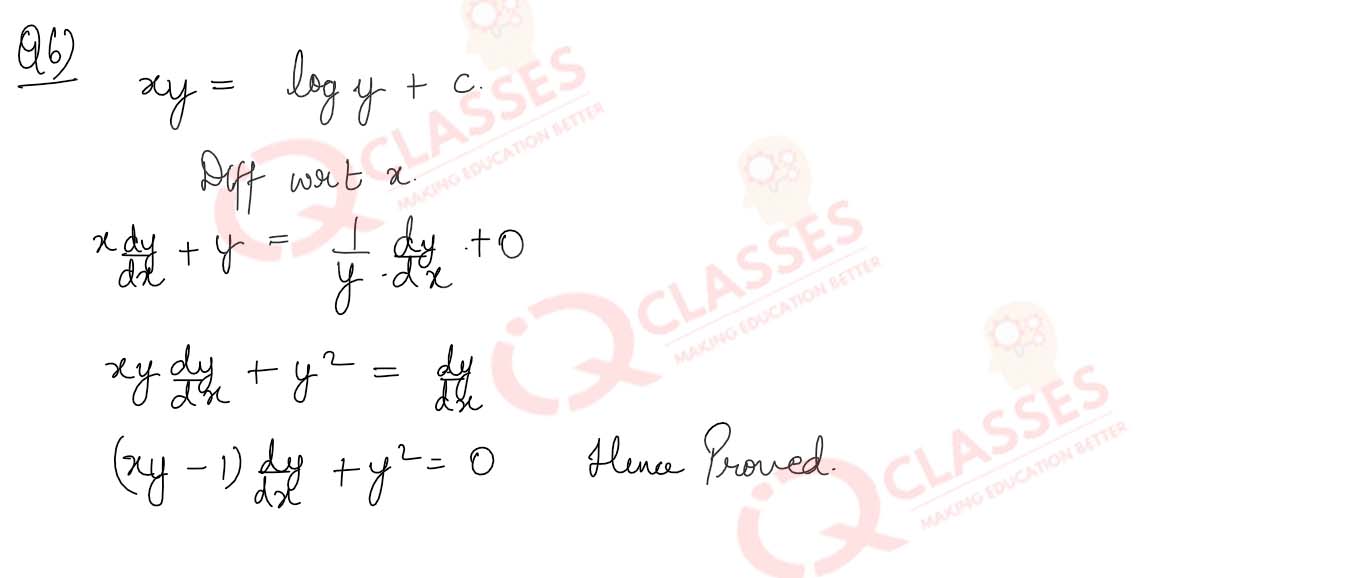 Q6)
xy = log y + c.
Diff wrt x.
x dy/dx + y = 1/y . dy/dx + 0
xy dy/dx + y² = dy/dx
(xy - 1) dy/dx + y² = 0 Hence Proved.
CLASSES
MAKING EDUCATION BETTER
CLASSES
MAKING EDUCATION BETTER
CLASSES
MAKING EDUCATION BETTER